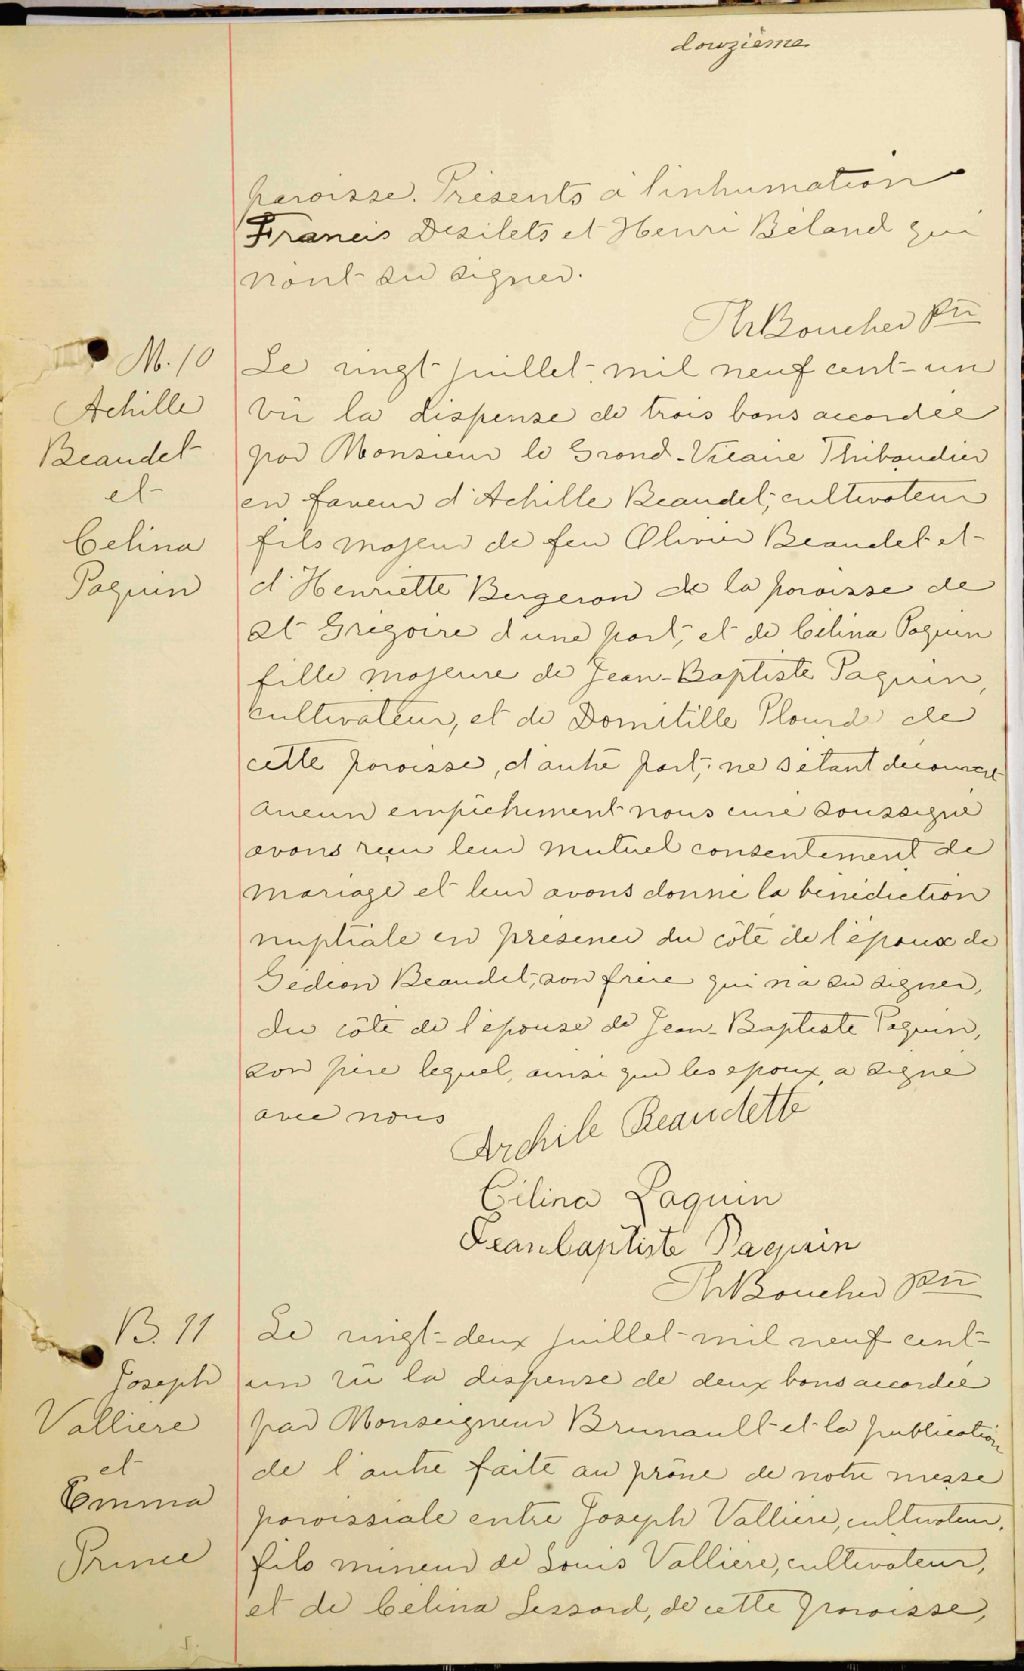 douzième
paroisse. Présents à l'inhumation
Francis Desilets et Henri Béland qui
n'ont su signer.
Th Boucher ptr
M. 10
Achille
Beaudet
et
Celina
Paquin
Le vingt juillet mil neuf cent-un
vu la dispense de trois bans accordée
par Monsieur le Grand-Vicaire Thibaudier
en faveur d'Achille Beaudet, cultivateur
fils majeur de feu Olivier Beaudet et
d'Henriette Bergeron de la paroisse de
St Grégoire d'une part, et de Célina Paquin
fille majeure de Jean-Baptiste Paquin,
cultivateur, et de Domitille Plourde de
cette paroisse, d'autre part; ne s'étant découvert
aucun empêchement nous curé soussigné
avons reçu leur mutuel consentement de
mariage et leur avons donné la bénédiction
nuptiale en présence du côté de l'époux de
Gédéon Beaudet, son frère qui n'a su signer,
du côté de l'épouse de Jean-Baptiste Paquin,
son père lequel, ainsi que les époux, a signé
avec nous
Archile Beaudette
Célina Paquin
Jean baptiste Paquin
Th Boucher ptr
B. 11
Joseph
Vallière
et
Emma
Prince
Le vingt-deux juillet mil neuf cent-
un vu la dispense de deux bans accordée
par Monseigneur Brunault et la publication
de l'autre faite au prône de notre messe
paroissiale entre Joseph Vallière, cultivateur,
fils mineur de Louis Vallière, cultivateur,
et de Célina Lessard, de cette paroisse,